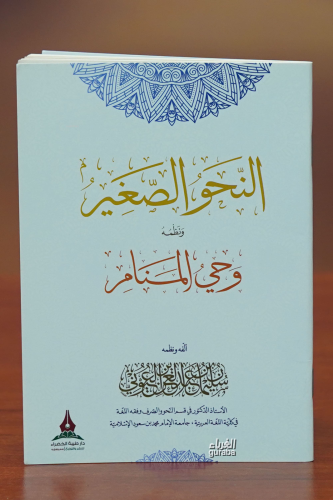 النَّحْوُ الصَّغِيرُ
وَنَظْمُهُ
وَحْيُ المَنَامِ
ألفه ونظمه
سليمان بن عبد العزيز العيوني
الأستاذ الدكتور في قسم النحو والصرف وفقه اللغة
في كلية اللغة العربية، جامعة الإمام محمد بن سعود الإسلامية
دار طيبة الخضراء
الغرباء
guraba